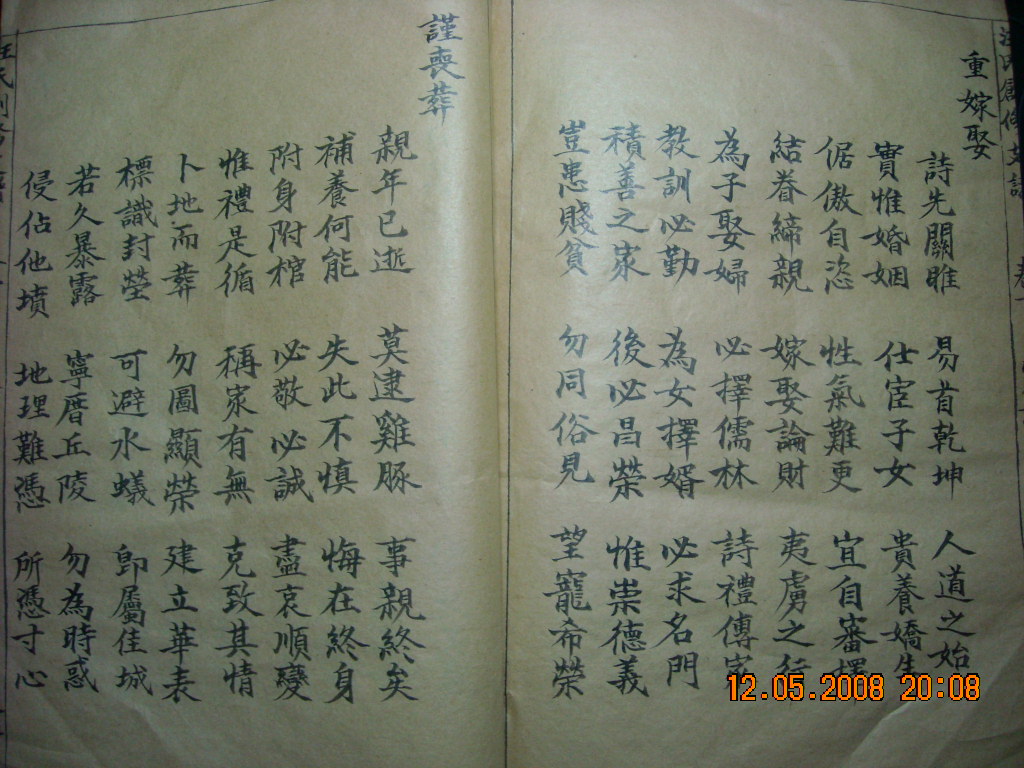 重嫁娶
詩先關雎 易首乾坤 人道之始
實惟婚姻 仕宦子女 貴養嬌生
倨傲自恣 性氣難更 宜自審擇
結眷締親 嫁娶論財 夷虜之行
為子娶婦 必擇儒林 詩禮傳家
教訓必勤 為女擇婿 必求名門
積善之家 後必昌榮 惟崇德義
豈患賤貧 勿同俗見 望寵希榮
謹喪葬
親年已逝 莫逮雞豚 事親終矣
補養何能 失此不慎 悔在終身
附身附棺 必敬必誠 盡哀順變
惟禮是循 稱家有無 克致其情
卜地而葬 勿圖顯榮 建立華表
標識封塋 可避水蟻 卽屬佳城
若久暴露 寧厝丘陵 勿為時惑
侵佔他墳 地理難憑 所憑寸心
12.05.2008 20:08